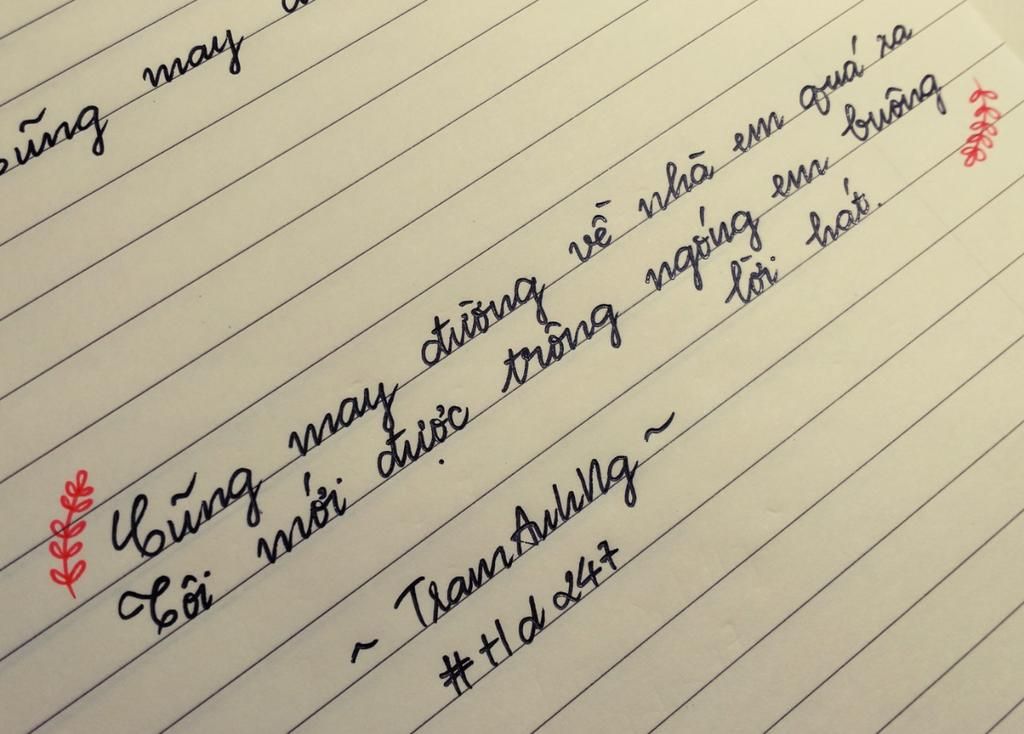 Cũng may
Cũng may đường về nhà em quá xa
Tôi mới được trông ngóng em buông
lời hát.
~ TramAnhNg ~
#tld247